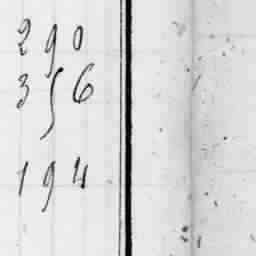 290
356
194